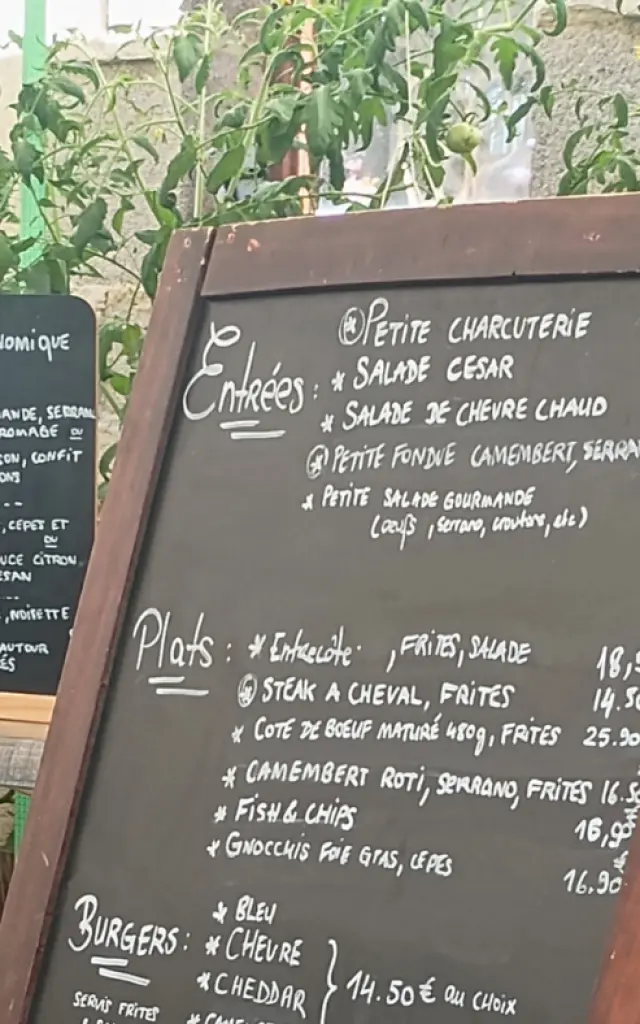 NOMIQUE
ANDE, SERRAN
ROMAGE OU
ON, CONFIT
, CÈPES ET
OU
UCE CITRON
ESAN
, NOISETTE
AUTOUR
ÉS
Entrées :
* PETITE CHARCUTERIE
* SALADE CESAR
* SALADE DE CHEVRE CHAUD
* PETITE FONDUE CAMEMBERT, SERRA
* PETITE SALADE GOURMANDE
(oeufs, serrano, croutons, etc)
Plats :
* Entrecôte , FRITES, SALADE 18,5
* STEAK A CHEVAL, FRITES 14.50
* COTE DE BOEUF MATURÉ 480g, FRITES 25.90
* CAMEMBERT ROTI, SERRANO, FRITES 16.50
* FISH & CHIPS 16,90€
* GNOCCHIS FOIE GRAS, CEPES 16.90€
BURGERS :
* BLEU
* CHEVRE
* CHEDDAR
14.50€ au CHOIX
SERVIS FRITES